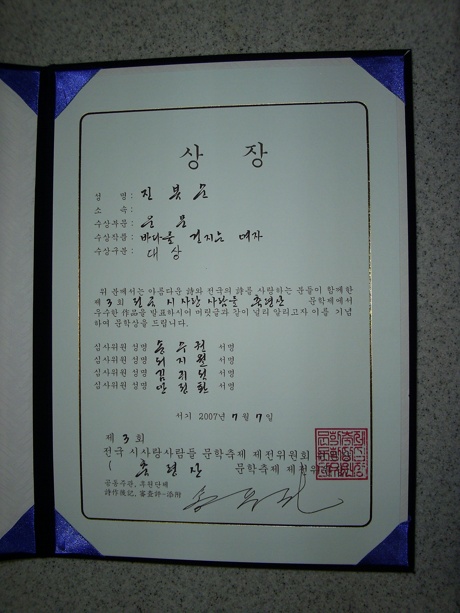 상 장
성 명 :
소 속 :
수상부문 : 운 문
수상작품 : 바다를 건지는 여자
수상구분 : 대 상
위 분께서는 아름다운 詩와 전국의 詩를 사랑하는 분들이 함께한
제 3 회 전국 시 사랑 사람들 문학제에서
우수한 作品을 발표하시어 머릿글과 같이 널리 알리고자 이를 기념
하여 문학상을 드립니다.
심사위원 성명 송 수 권 서명
심사위원 성명 허 지 원 서명
심사위원 성명 김 서명
심사위원 성명 안 서명
서기 2007년 7 월 7 일
제 3 회
전국 시사랑사람들 문학축제 제전위원회
( 문학축제 제전위
공동주관, 후원단체
詩作後記, 審査評-添附